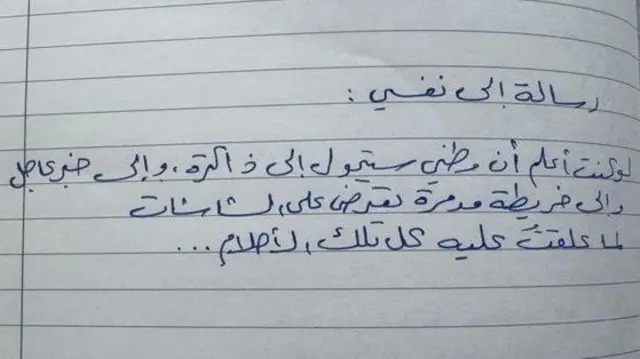 رسالة إلى نفسي :
لو كنت أعلم أن وطني سيتحول إلى ذاكرة ، وإلى خبر عاجل
وإلى خريطة مدمرة تعرض على الشاشات
لما علقت عليه كل تلك الأحلام ...